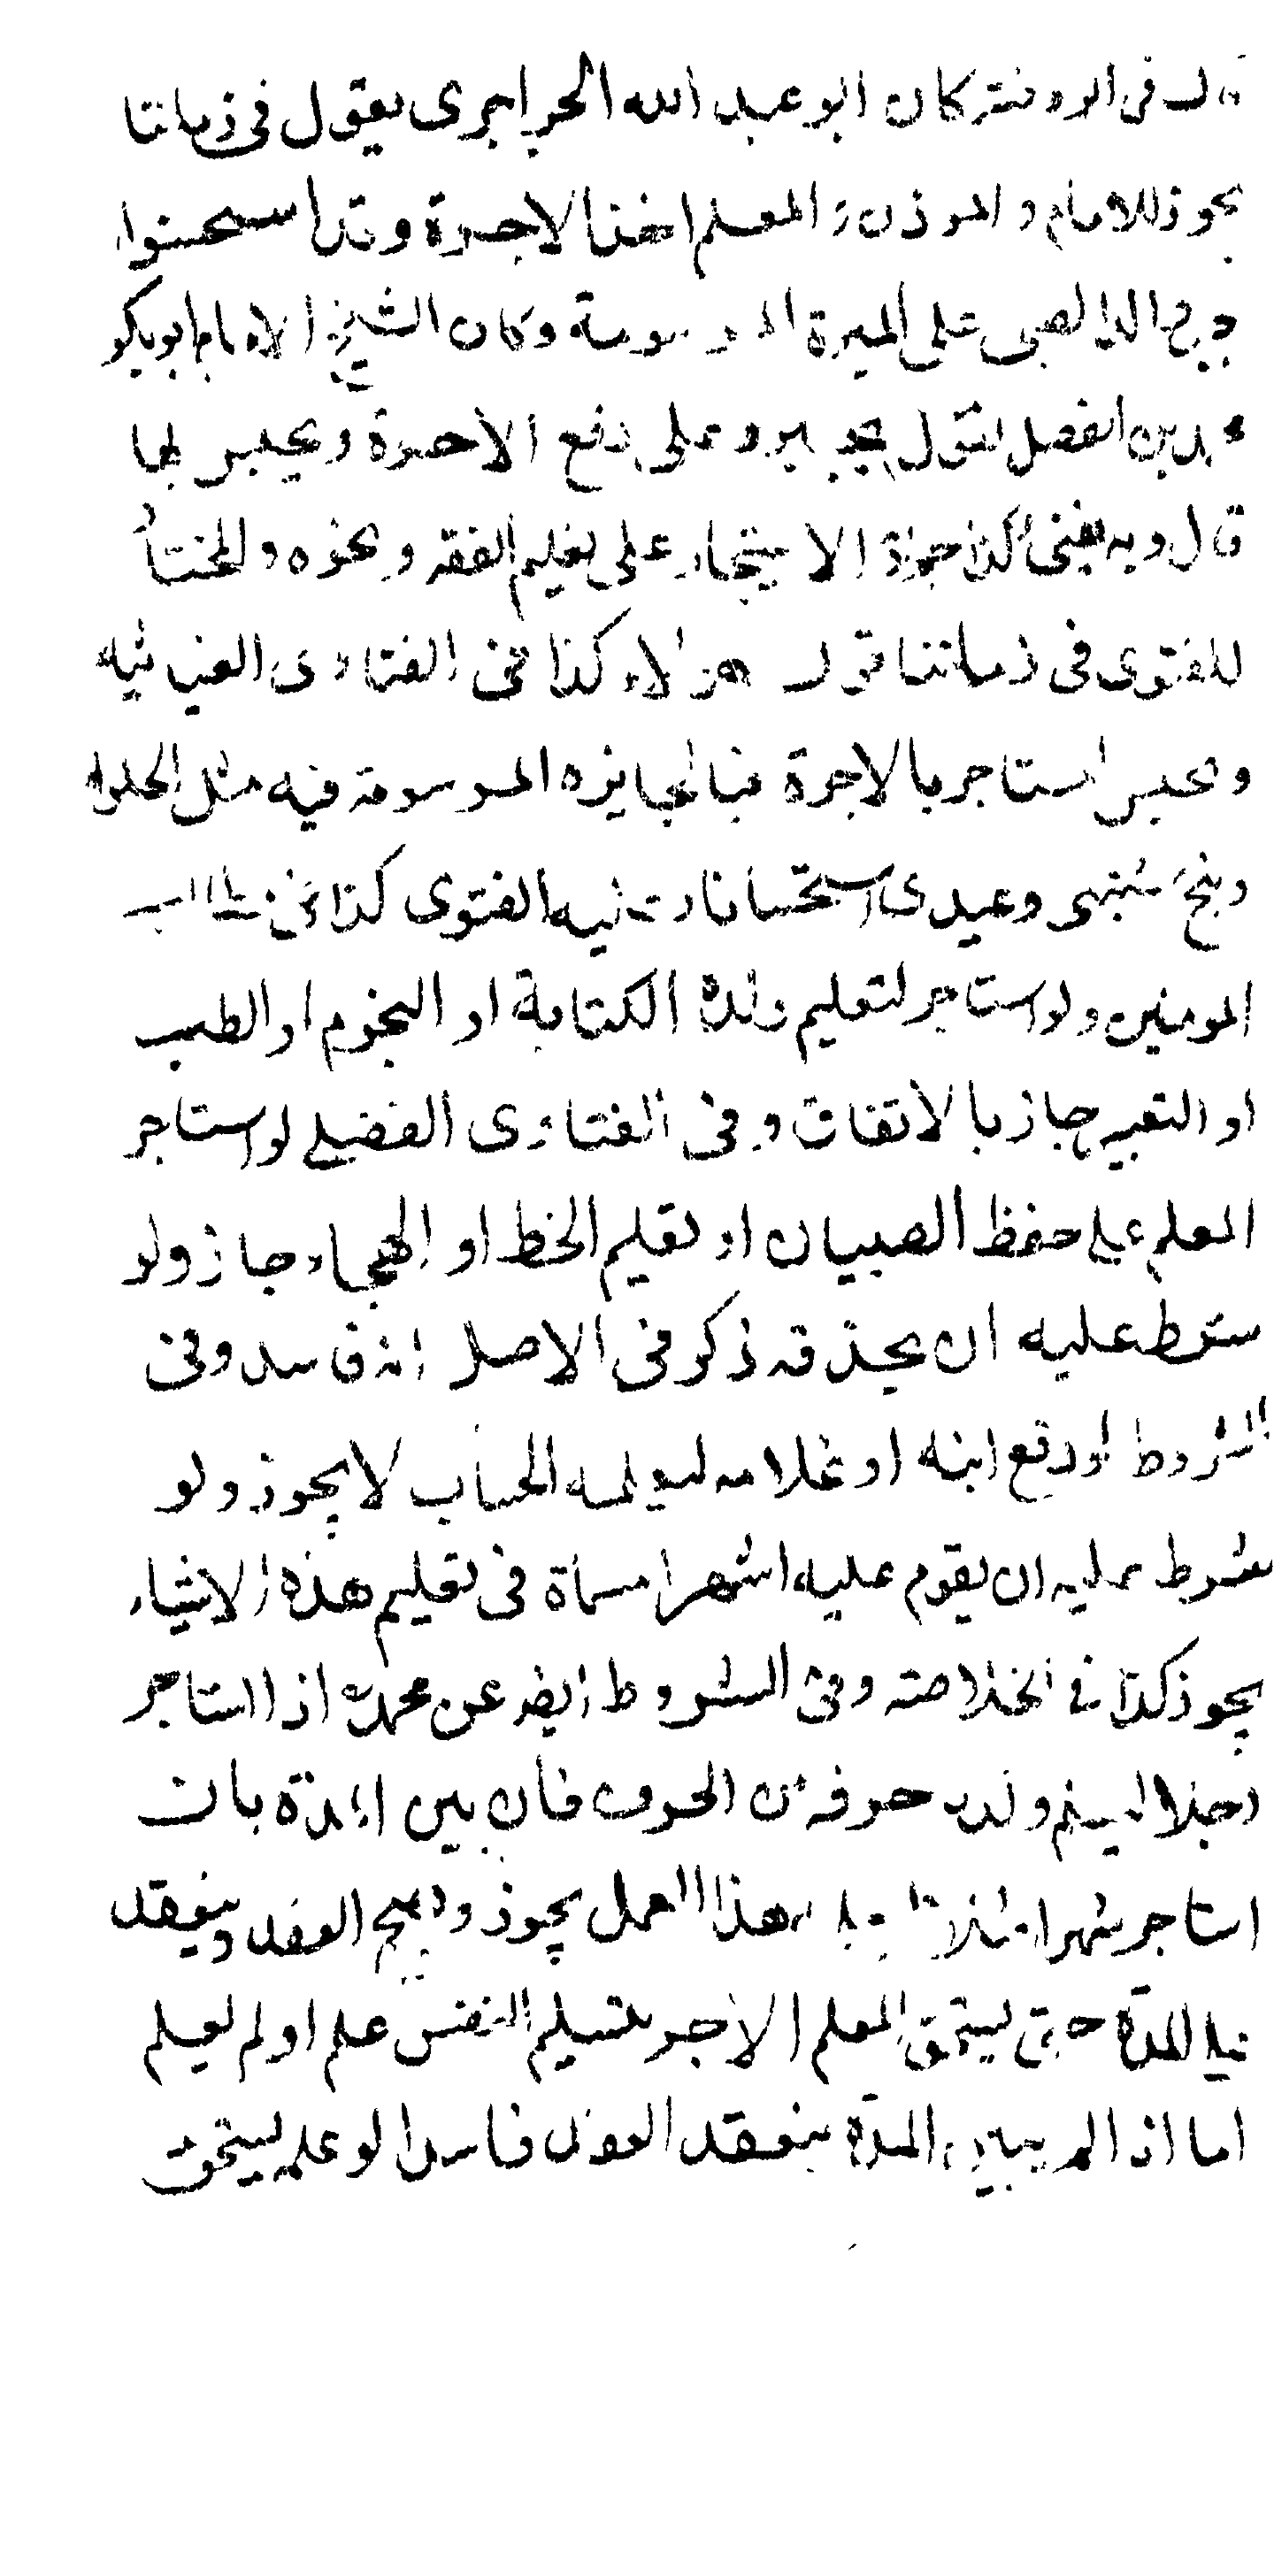 قال في الروضة كان ابو عبد الله الحراجرى يقول في زماننا
يجوز للامام و الموذن و المعلم اخذ الاجرة وقد استحسنوا
الصبى على المبرة المرسومة وكان الشيخ الامام ابو بكر
محمد بن الفضل يقول يجبر على دفع الاجرة ويحبس بها
قال وبه يفتى كذا جواز الاستيجار على تعليم الفقه ونحوه والمختار
للفتوى فى زماننا قول هولاء كذا فى الفتاوى الغياثيه
ويحبس استاجر بالاجرة المرسومة فيه مثل الحلواء
وعيدى استحسانا الفتوى كذا فى
المومنين ولو استاجر لتعليم ولده الكتابة او النجوم او الطب
او التعبير جاز بالاتفاق وفى الفتاوى الفضلى لو استاجر
المعلم على حفظ الصبيان او تعليم الخط او الهجاء جاز ولو
شرط عليه ان يحذقه ذكر فى الاصل انه فاسد وفى
الشروط لو دفع ابنه او غلامه ليعلمه الحساب لا يجوز ولو
شرط عليه ان يقوم عليه اشهرا مسماة فى تعليم هذه الاشياء
يجوز كذا فى الخلاصة وفى الشروط ايضا عن محمد اذا استاجر
رجلا ليعلم ولده حرفة من الحرف فان بين المدة بان
استاجر شهرا مثلا هذا العمل يجوز ويصح العقد وينعقد
على المدة حتى يستحق المعلم الاجر بتسليم النفس علم او لم يعلم
اما اذا لم يبين المدة ينعقد العقد فاسدا لو علمه يستحق